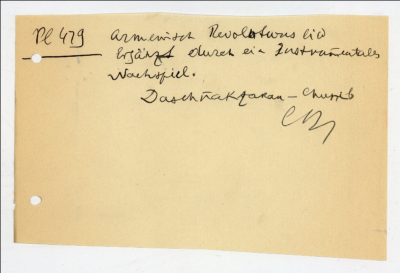 Pl 479 Armenisch Revolotwns lid
Ergänzt durch ein Instrumentales
Nachspiel.
Daschnakzakan –